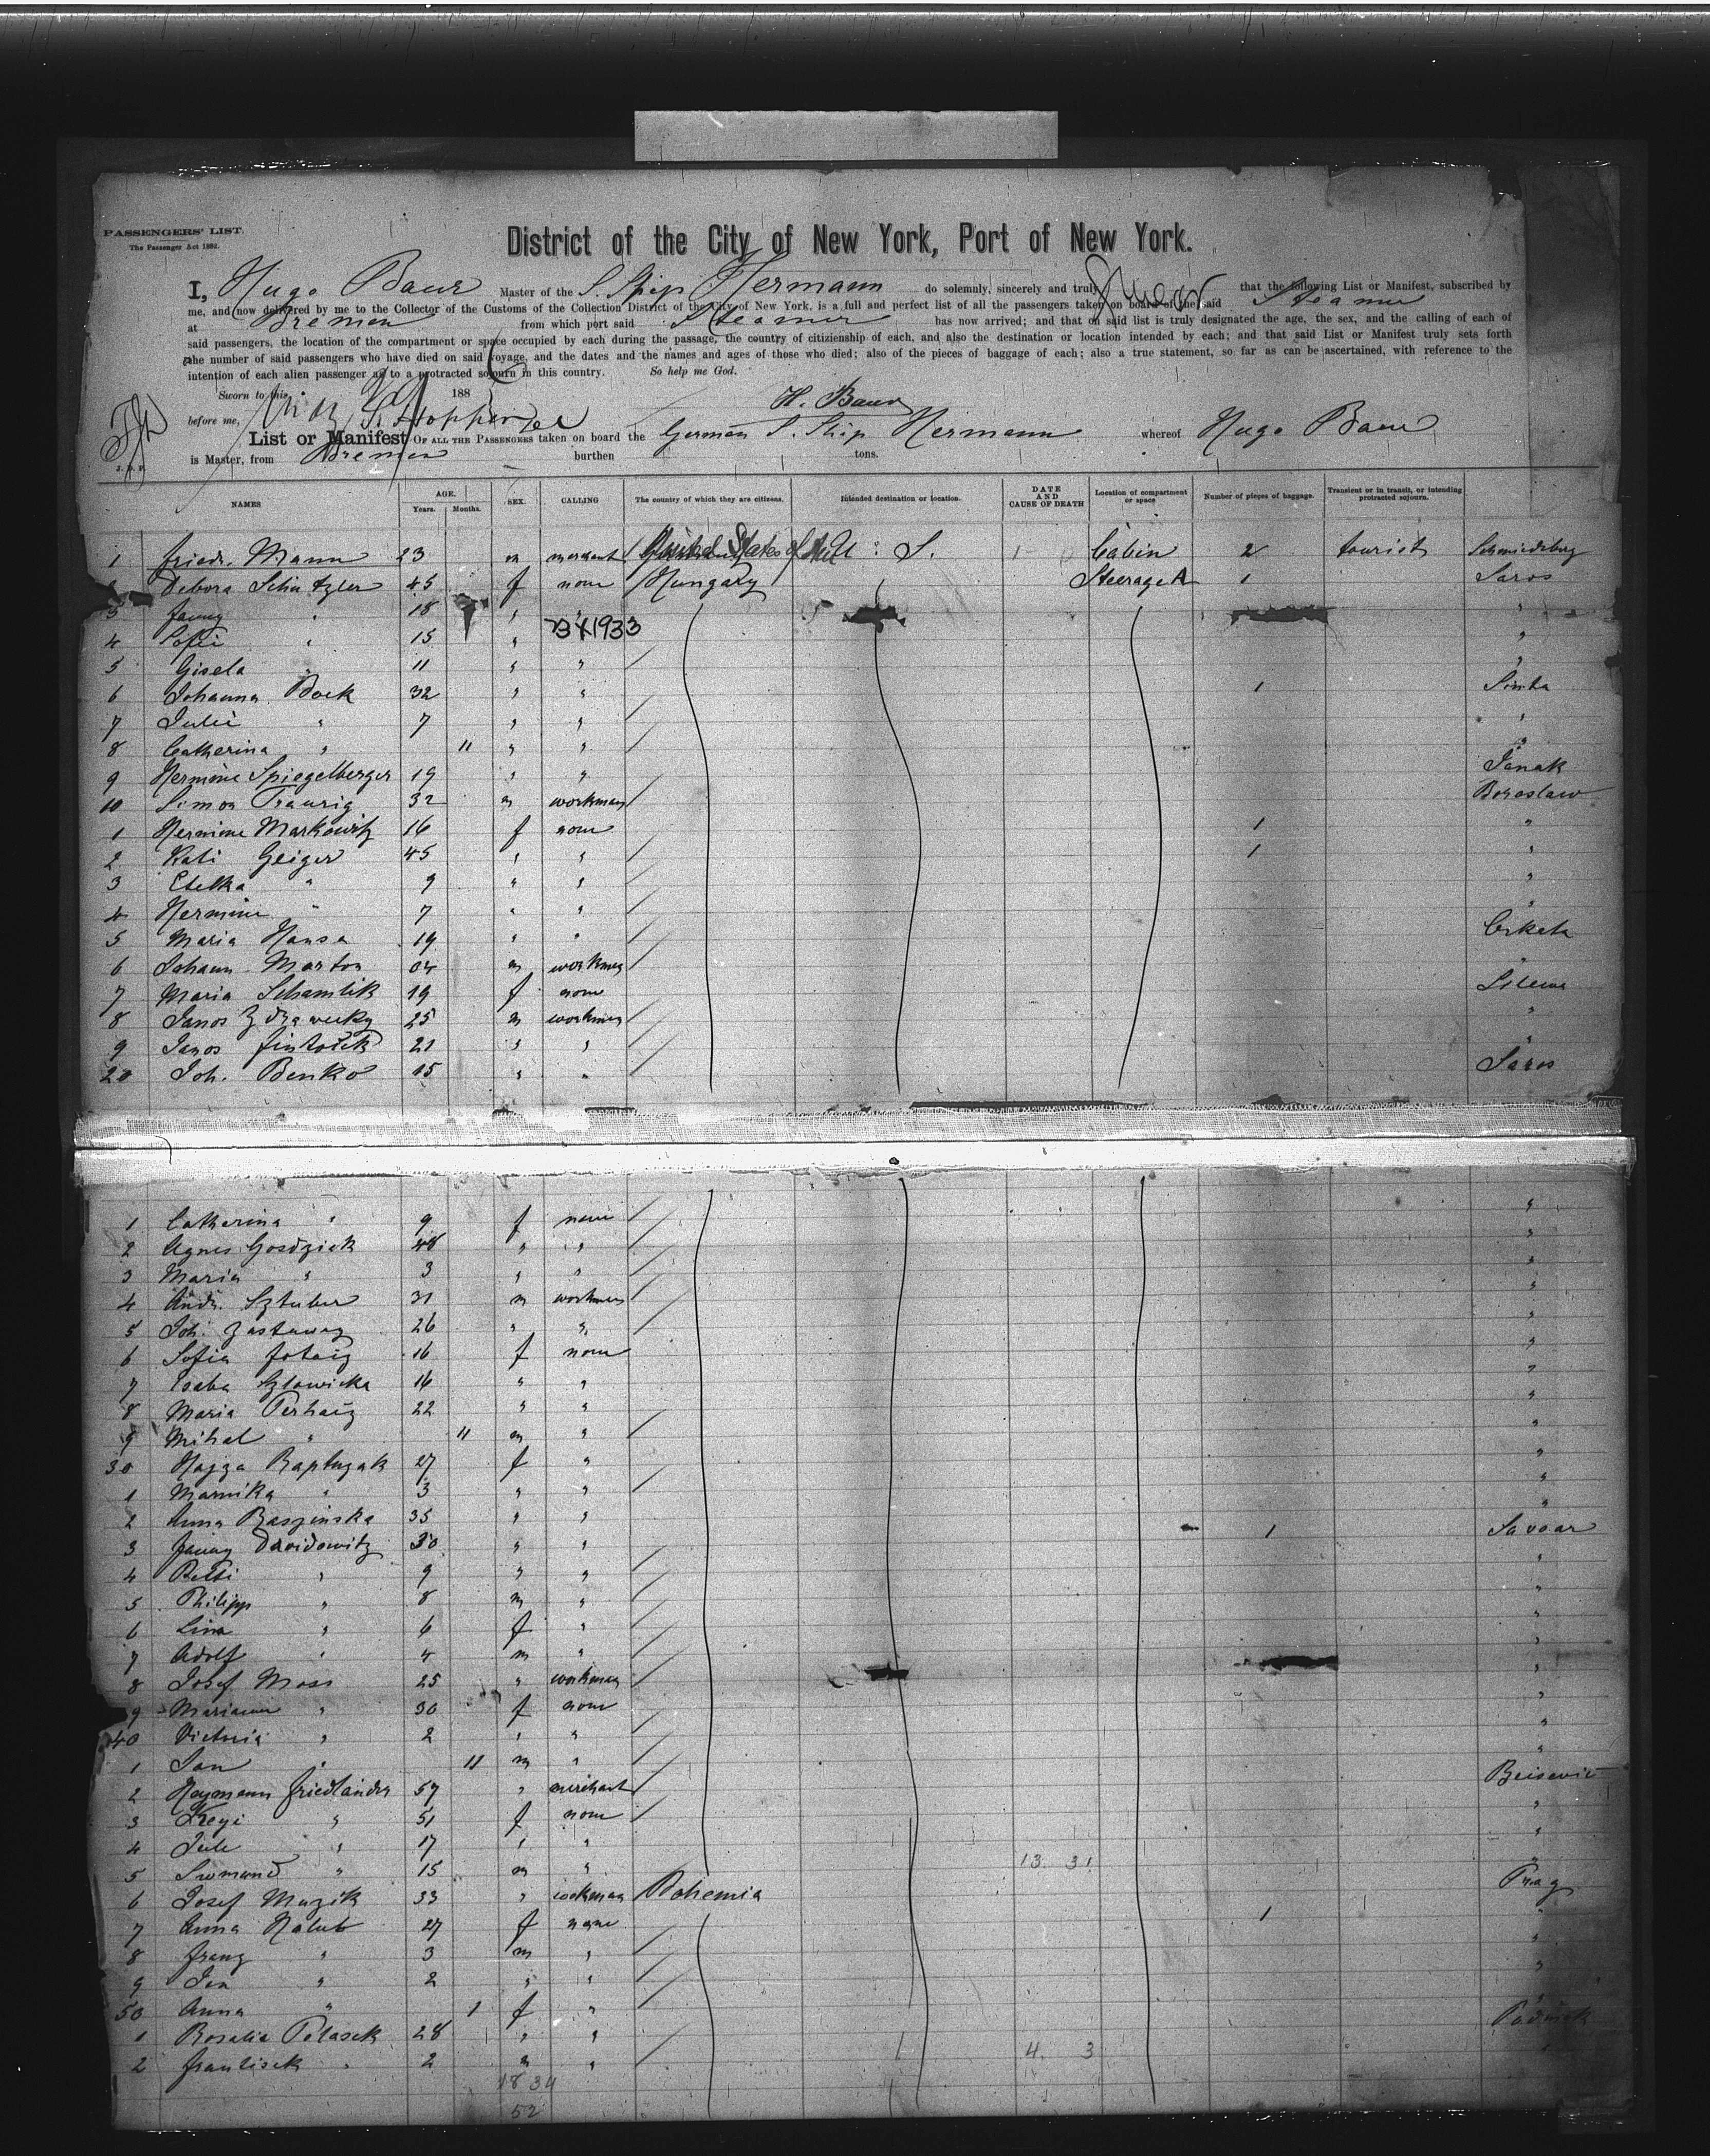 PASSENGERS' LIST.
The Passenger Act 1882.
District of the City of New York, Port of New York.
I, Hugo Baur Master of the S. Ship Hermann do solemnly, sincerely and truly swear that the following List or Manifest, subscribed by
me, and now delivered by me to the Collector of the Customs of the Collection District of the City of New York, is a full and perfect list of all the passengers taken on board of the said Steamer
at Bremen from which port said Steamer has now arrived; and that on said list is truly designated the age, the sex, and the calling of each of
said passengers, the location of the compartment or space occupied by each during the passage, the country of citizienship of each, and also the destination or location intended by each; and that said List or Manifest truly sets forth
the number of said passengers who have died on said voyage, and the dates and the names and ages of those who died; also of the pieces of baggage of each; also a true statement, so far as can be ascertained, with reference to the
intention of each alien passenger as to a protracted sojourn in this country. So help me God.
Sworn to this 188
before me, H. Baur
List or Manifest OF ALL THE PASSENGERS taken on board the German S. Ship Hermann whereof Hugo Baur
is Master, from Bremen burthen tons.
J. D. P.
NAMES AGE. Years. Months. SEX. CALLING The country of which they are citizens. Intended destination or location. DATE AND CAUSE OF DEATH Location of compartment or space Number of pieces of baggage. Transient or in transit, or intending protracted sojourn.
1 Friedr. Mann 23 m merchant United States of U. S. Cabin 2 tourist Schmiedeberg
Debora 45 f none Hungary Steerage A 1 Saros
3 Fanny " 18 " "
B X 1933
4 Sofie " 15 " "
5 Gisela " 11 " " "
6 Johanna Bock 32 " " 1
7 Julie " 7 " " "
8 Catherina " 11 " " "
9 Hermine Spiegelberger 19 " " Janak
10 Simon Traurig 32 m workman Boroslaw
1 Hermine Markowitz 16 f none 1 "
2 Kati Geiger 45 " " 1 "
3 Etelka " 9 " " "
4 Hermine " 7 " " "
5 Maria Hansa 19 " "
6 Johann Marton m workman "
7 Maria Schamlik 19 f none
8 Janos 25 m workman "
9 Janos 21 " " "
20 Joh. Benko 15 " " Saros
1 Catherina " 9 f none "
2 Agnes Gosdziak 48 " " "
3 Maria " 3 " " "
4 Andr. Sztuber 31 m workman "
5 Joh. 26 " " "
6 Sofia 16 f none "
7 16 " " "
8 Maria 22 " " "
9 Mihal " 11 m " "
30 27 f " "
1 Marinka " 3 " " "
2 Anna 35 " " "
3 Fanny Davidowitz 30 " " 1 Savoar
4 Betti " 9 " " "
5 Philipp " 8 m " "
6 Lina " 6 f " "
7 Adolf " 4 m " "
8 Josef Moss 25 " workman "
9 Mariann " 30 f none "
40 Victoria " 2 " " "
1 Jan " 11 m " "
2 Heymann Friedländer 57 " merchant
3 " 51 f none "
4 Jule " 17 " " "
5 " 15 m " 13. 31 "
6 Josef Muzik 33 " workman Bohemia Prag
7 Anna Halub 27 f none 1 "
8 Franz " 3 m " "
9 Jan " 2 " " "
50 Anna " 1 f " "
1 Rosalia Pelasek 28 " "
2 Frantisek " 2 m " 4. 3 "
18 34
52